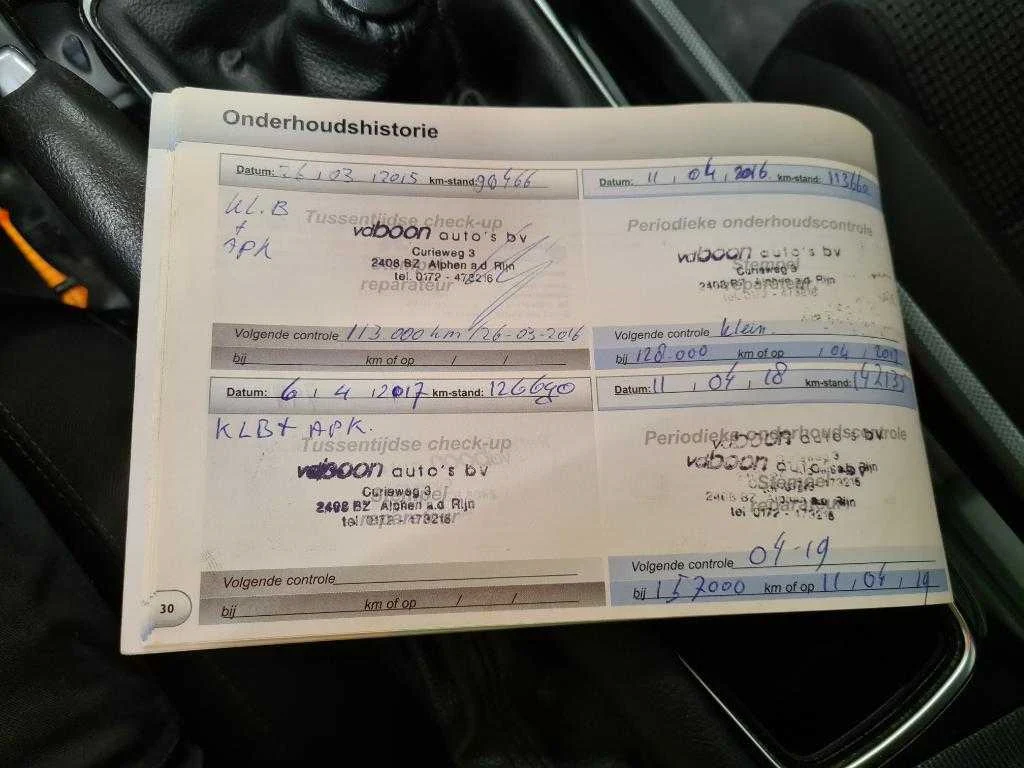 Onderhoudshistorie
Datum: 26, 03, 2015 km-stand: 90466
KL.B
+
APK
Tussentijdse check-up
vdboon auto's bv
Curieweg 3
2408 BZ Alphen a.d. Rijn
tel. 0172 - 473216
reparateur
Volgende controle 113.000 km / 26-03-2016
bij km of op / /
Datum: 11, 04, 2016 km-stand: 113660
Periodieke onderhoudscontrole
vdboon auto's bv
Stempel
Curieweg 3
2408 BZ Alphen a.d. Rijn
reparateur
tel. 0172 -
Volgende controle klein.
bij 128.000 km of op , 04, 2017
Datum: 6, 4, 2017 km-stand: 126690
KLB + APK.
Tussentijdse check-up
vdboon auto's bv
Stempel
Curieweg 3
2408 BZ Alphen a.d. Rijn
reparateur
tel 0172 - 473216
Volgende controle
bij km of op / /
Datum: 11, 04, 18 km-stand:
Periodieke onderhoudscontrole
vdboon auto's bv
vdboon
Stempel
tel 0172 - 473216
Volgende controle 04-19
bij 157000 km of op 11, 04, 19
30